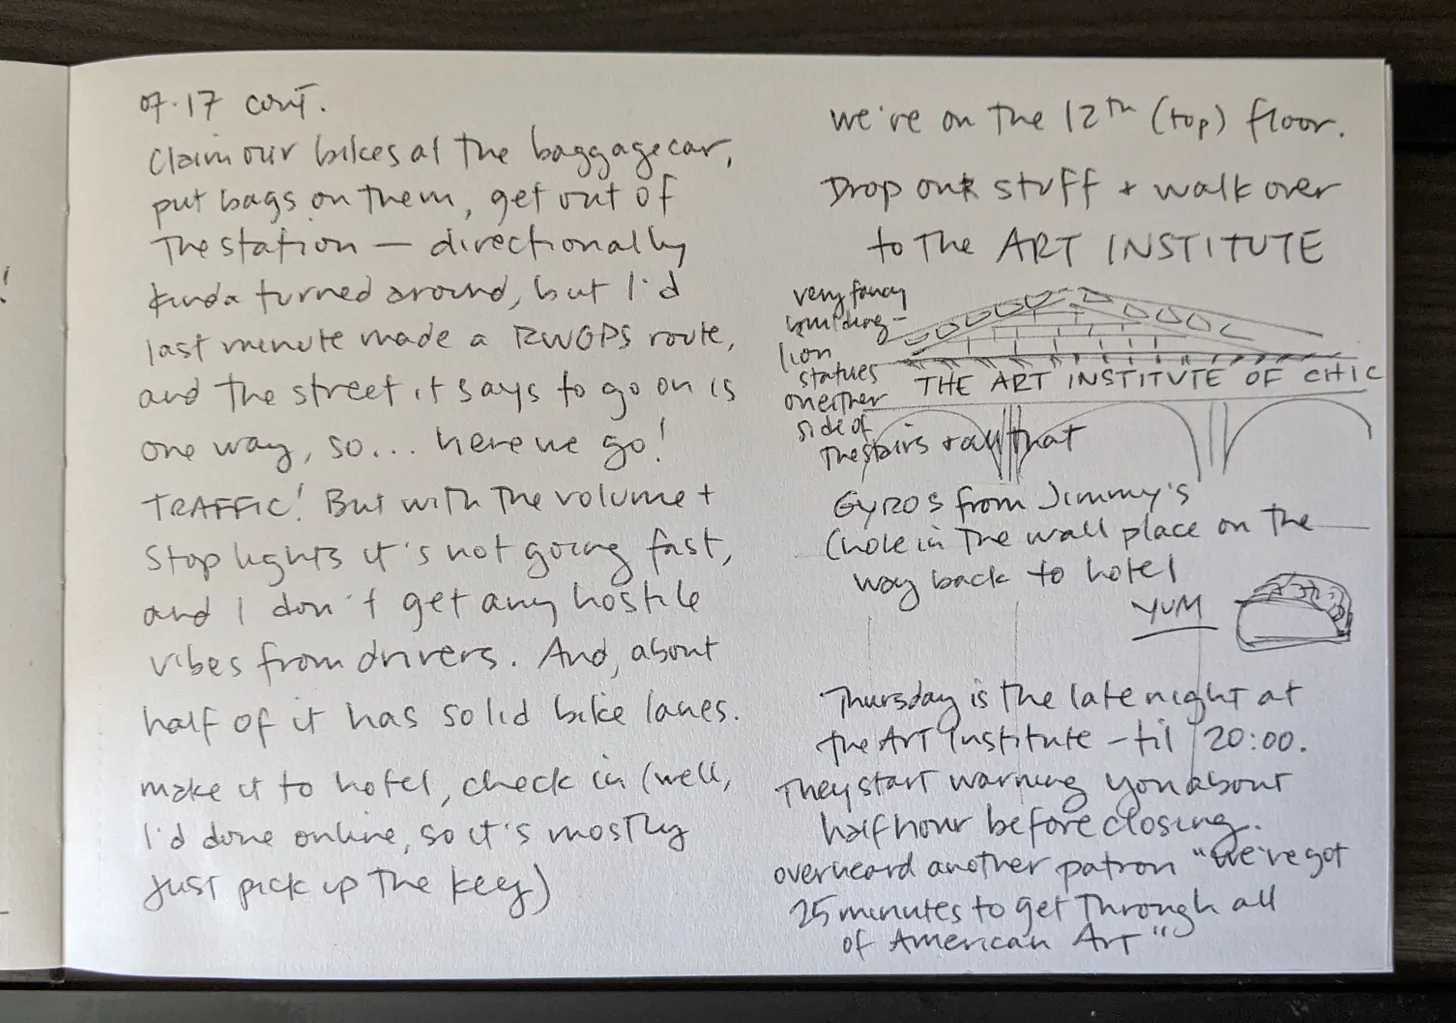 07.17 cont.
Claim our bikes at the baggage car,
put bags on them, get out of
the station — directionally
kinda turned around, but I'd
last minute made a RWGPS route,
and the street it says to go on is
one way, so... here we go!
TRAFFIC! But with the volume +
stop lights it's not going fast,
and I don't get any hostile
vibes from drivers. And, about
half of it has solid bike lanes.
make it to hotel, check in (well,
I'd done online, so it's mostly
just pick up the key)
we're on the 12th (top) floor.
Drop our stuff + walk over
to the ART INSTITUTE
very fancy
building –
lion
statues
on either
side of
the stairs
THE ART INSTITUTE OF CHIC
Gyros from Jimmy's
(hole in the wall place on the
way back to hotel
YUM
Thursday is the late night at
the Art Institute – til 20:00.
They start warning you about
half hour before closing.
overheard another patron "we've got
25 minutes to get through all
of American Art"
!